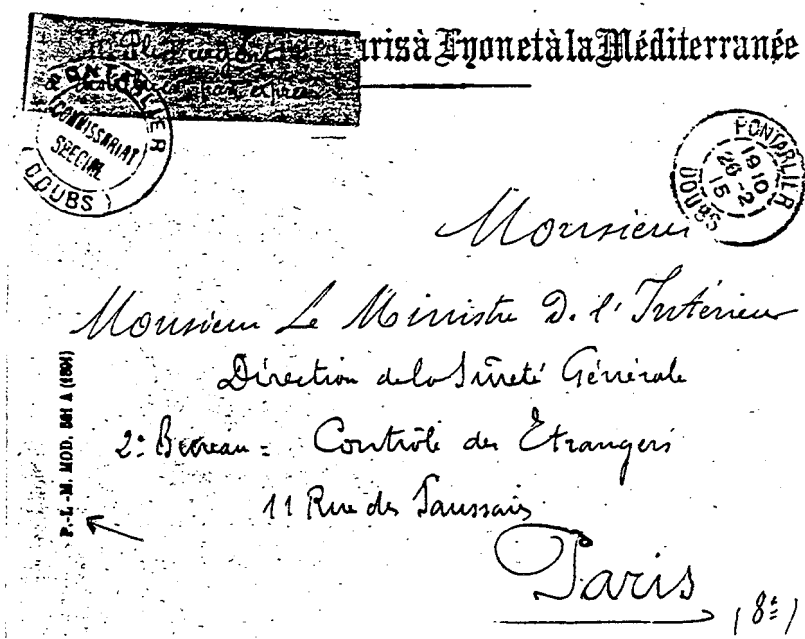 aris à Lyon et à la Méditerranée
PONTARLIER
COMMISSARIAT
SPECIAL
DOUBS
PONTARLIER
1910
26-2
15
DOUBS
Monsieur
Monsieur Le Ministre De l'Intérieur
Direction de la Sûreté Générale
2e Bureau = Contrôle des Etrangers
11 Rue des Saussais
Paris
(8e)
P.-L.-M. MOD. 561 A (1894)